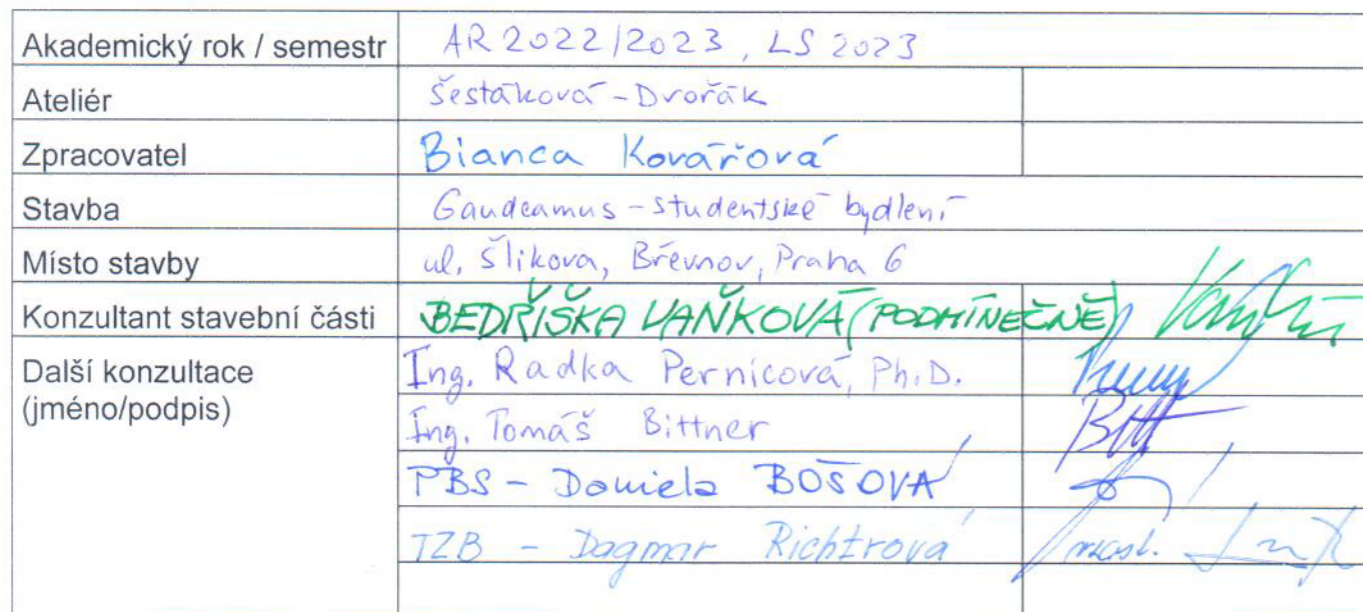 Akademický rok / semestr AR 2022/2023, LS 2023
Ateliér Šestáková - Dvořák
Zpracovatel Bianca Kovářová
Stavba Gaudeamus - studentské bydlení
Místo stavby ul. Šlikova, Břevnov, Praha 6
Konzultant stavební části BEDŘIŠKA VAŇKOVÁ (PODMÍNEČNĚ)
Další konzultace Ing. Radka Pernicová, Ph.D.
(jméno/podpis) Ing. Tomáš Bittner
PBS - Daniela BOŠOVÁ
TZB - Dagmar Richtrová